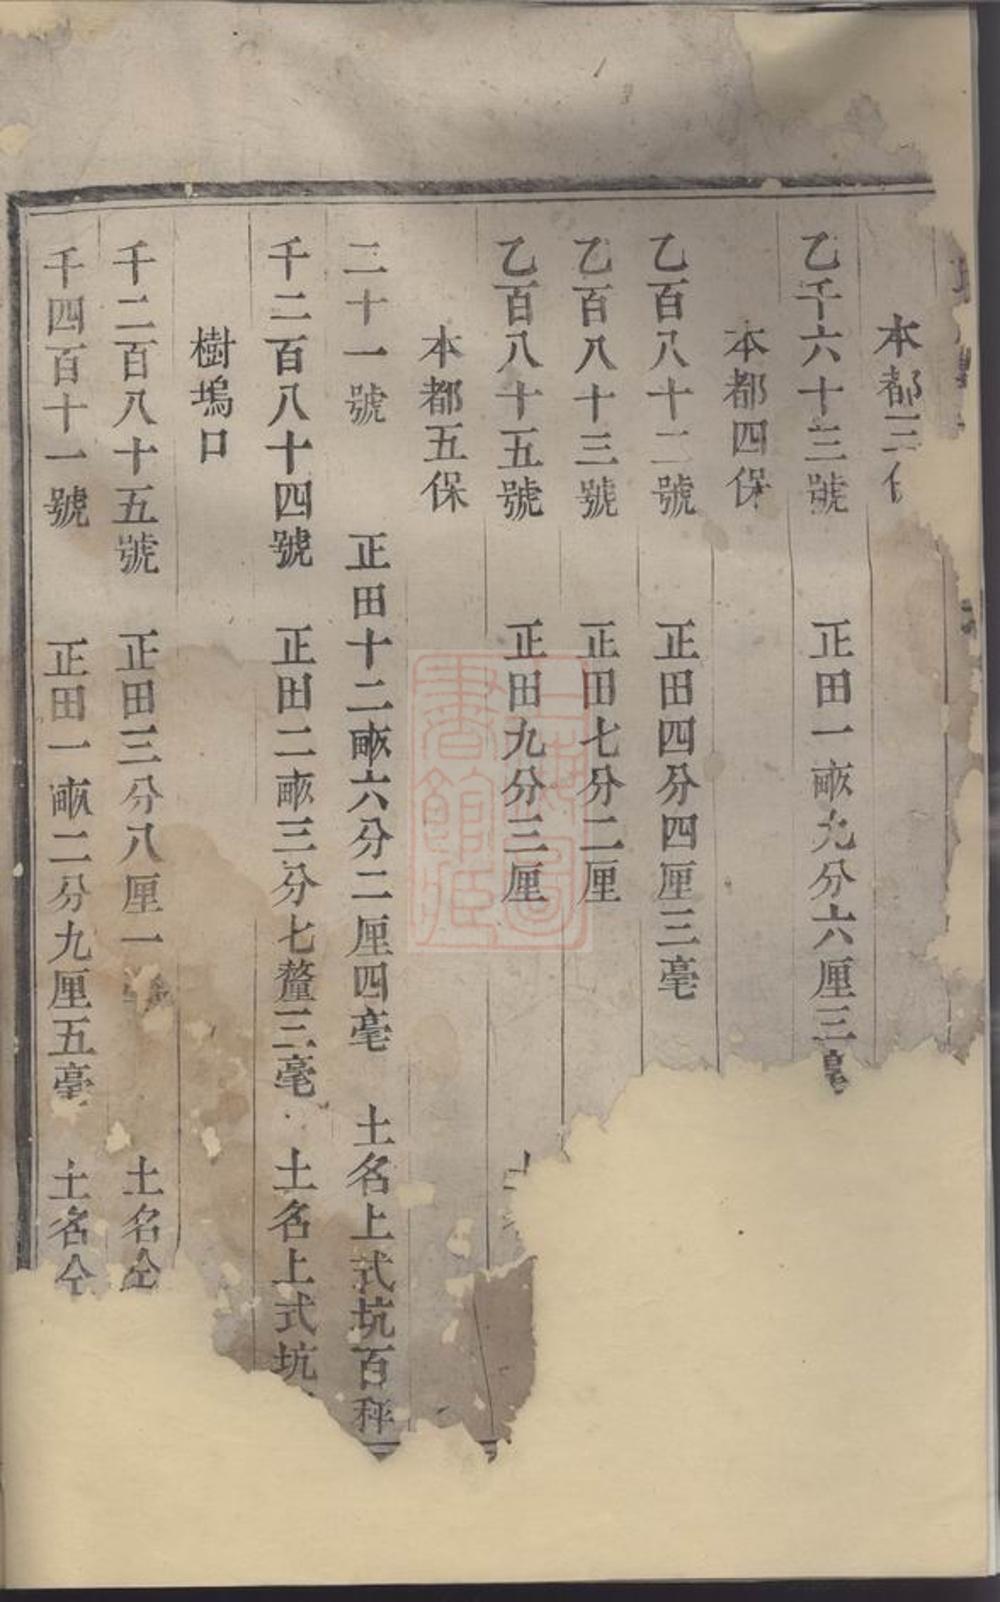 本都三
乙千六十三號 正田一畝九分六厘三毫
本都四保
乙百八十二號 正田四分四厘三毫
乙百八十三號 正田七分二厘
乙百八十五號 正田九分三厘
本都五保
二十一號 正田十二畝六分二厘四毫 土名上式坑百秤
千二百八十四號 正田二畝三分七釐三毫 土名上式坑
樹塢口
千二百八十五號 正田三分八厘一 土名仝
千四百十一號 正田一畝二分九厘五毫 土名仝
上海圖書館